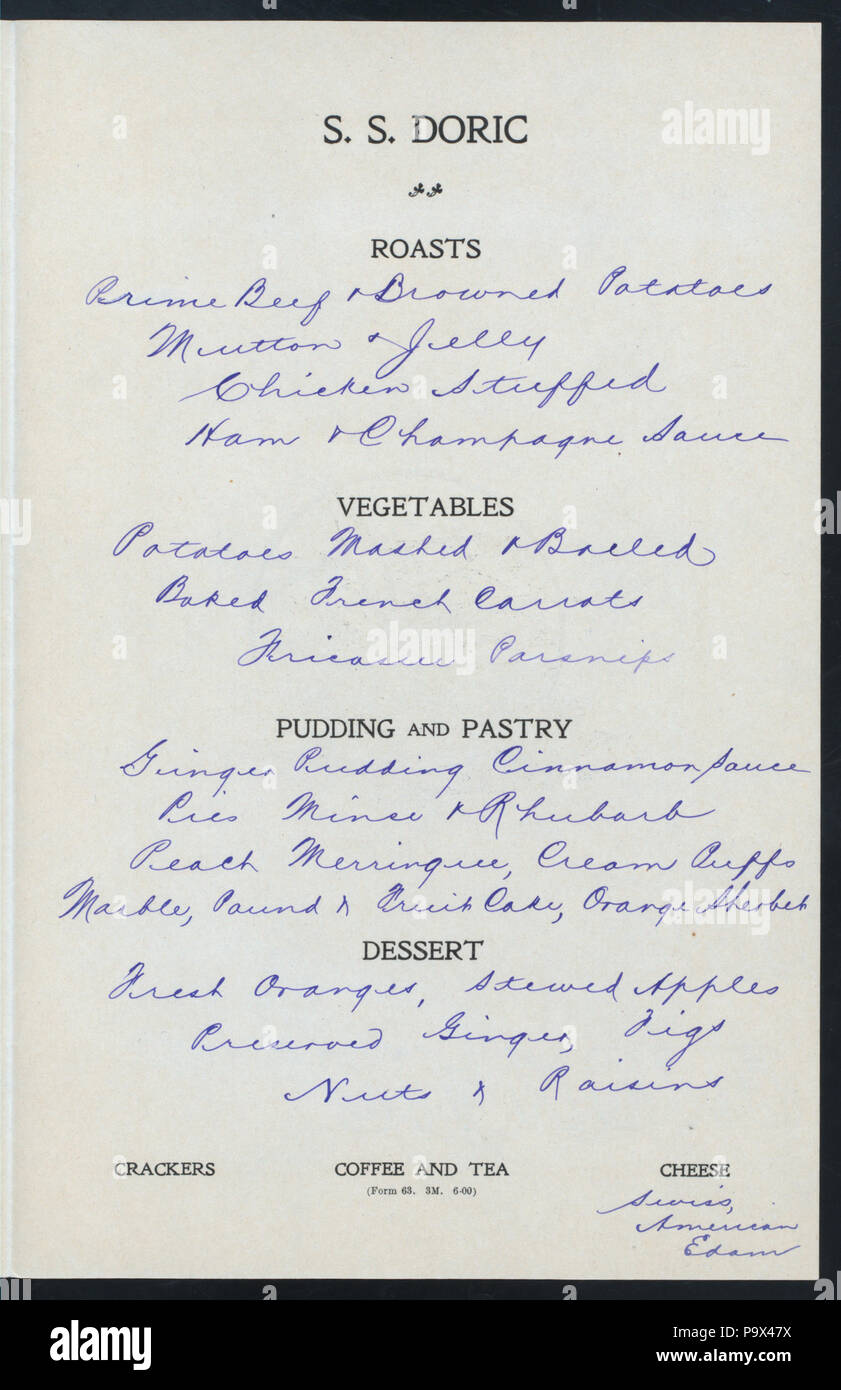 S. S. DORIC
ROASTS
Prime Beef & Browned Potatoes
Mutton & Jelly
Chicken Stuffed
Ham & Champagne Sauce
VEGETABLES
Potatoes Mashed & Boiled
Baked French Carrots
Fricassee Parsnips
PUDDING AND PASTRY
Ginger Pudding Cinnamon Sauce
Pies Minse & Rhubarb
Peach Merringue, Cream Puffs
Marble, Pound & Fruit Cake, Orange Sherbet
DESSERT
Fresh Oranges, Stewed Apples
Preserved Ginger, Figs
Nuts & Raisins
CRACKERS COFFEE AND TEA CHEESE
(Form 63. 3M. 6-00)
Swiss,
American
Edam
alamy
Image ID: P9X47X
www.alamy.com